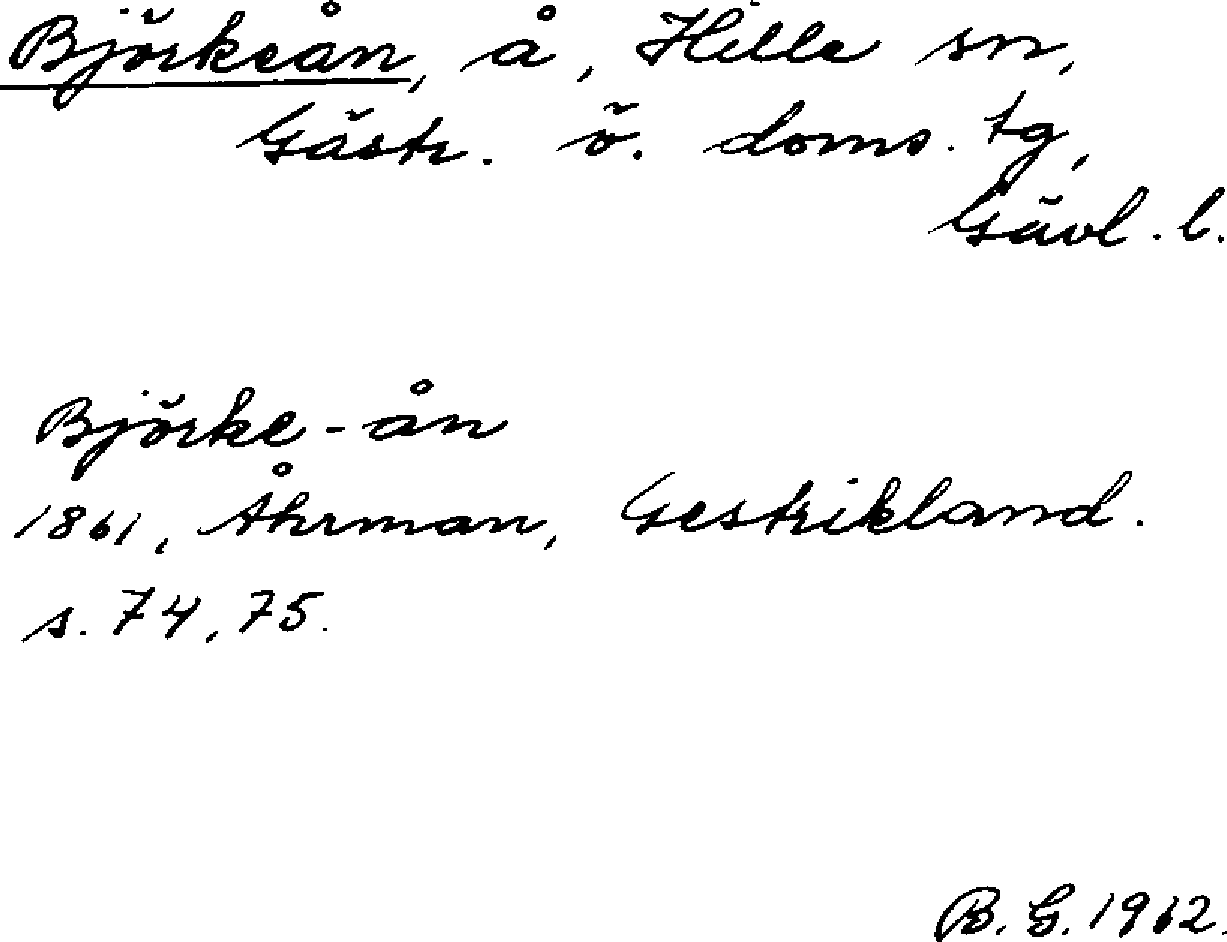 Björkeån, å, Hille sn,
Gästr. ö. doms. tg,
Gävl. l.
Björke-ån
1861, Åhrman, Gestrikland.
s. 74, 75.
B. G. 1962.